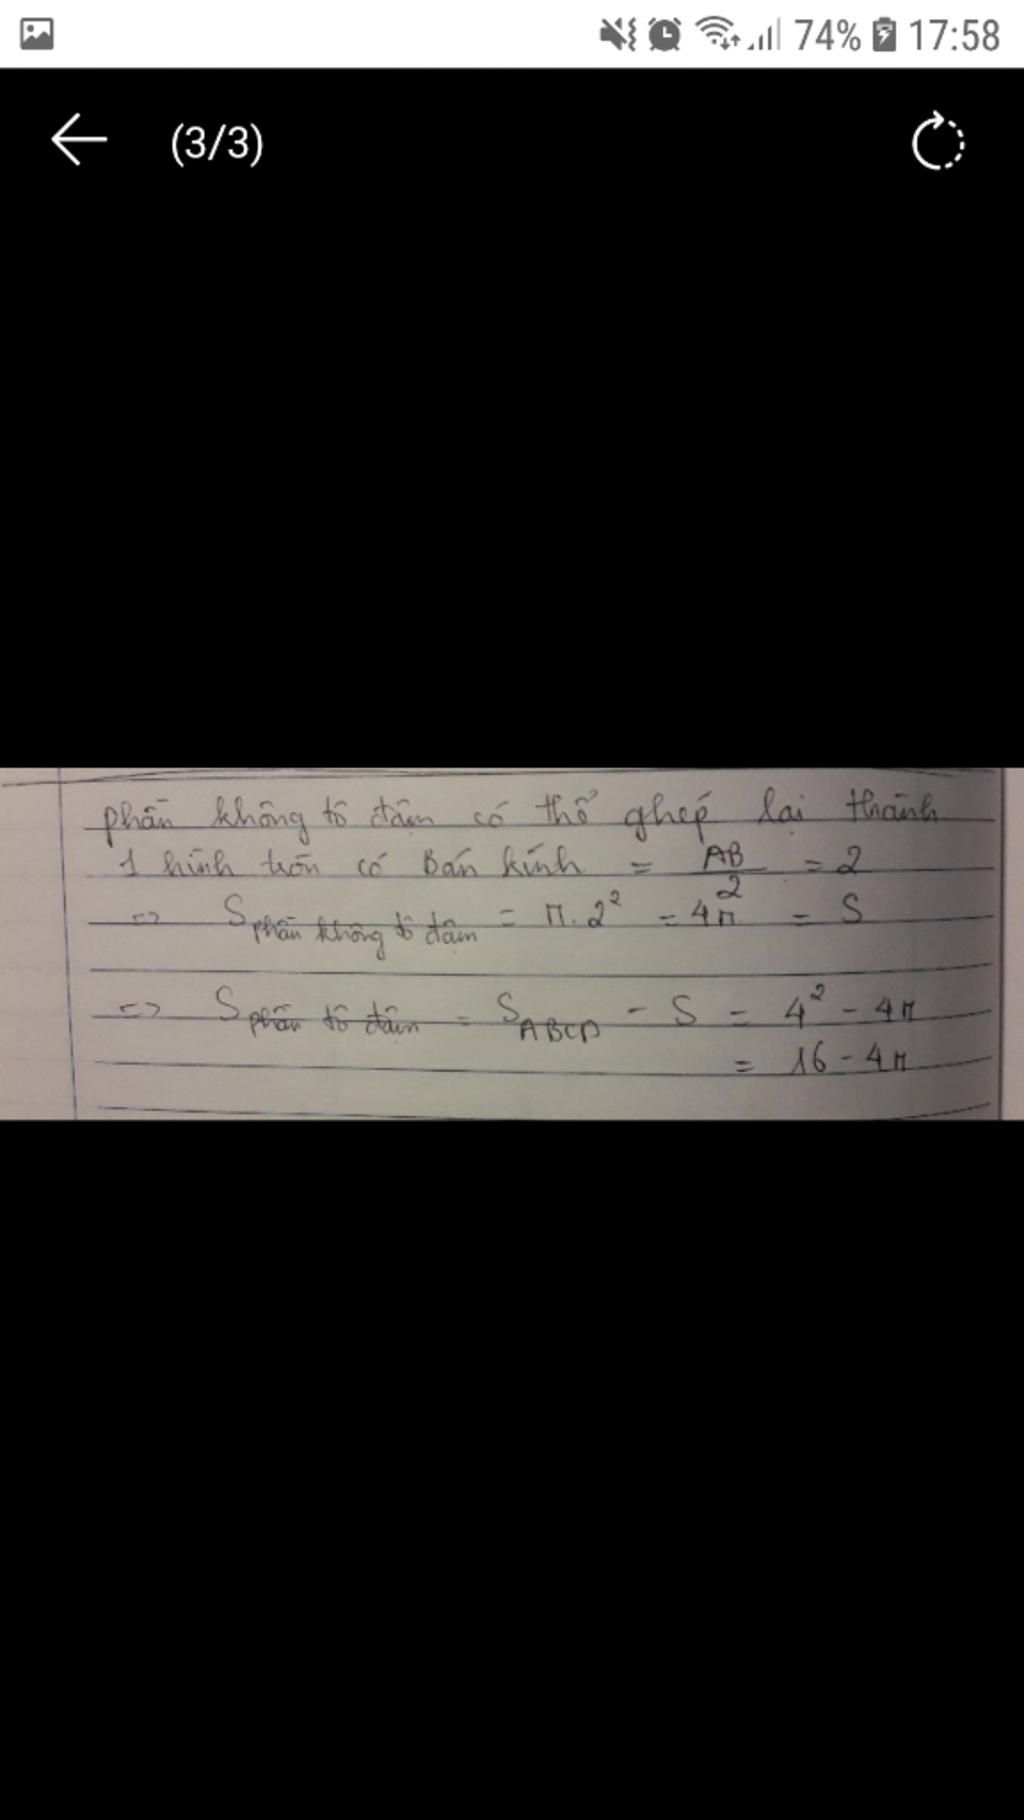 74% 17:58
(3/3)
phần không tô đậm có thể ghép lại thành
1 hình tròn có Bán kính = AB/2 = 2
=> S phần không tô đậm = π.2² = 4π = S
=> S phần tô đậm = S ABCD - S = 4² - 4π
= 16 - 4π